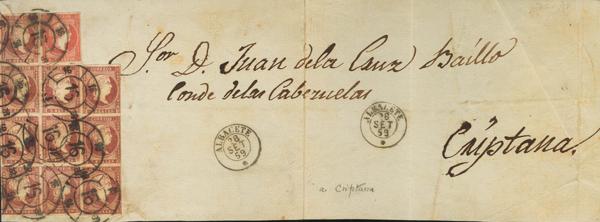 Sor. D. Juan de la Cruz Baillo
Conde de las Cabezuelas
Criptana.
ALBACETE
28
SET
59
ALBACETE
28
SET
59
a Criptana